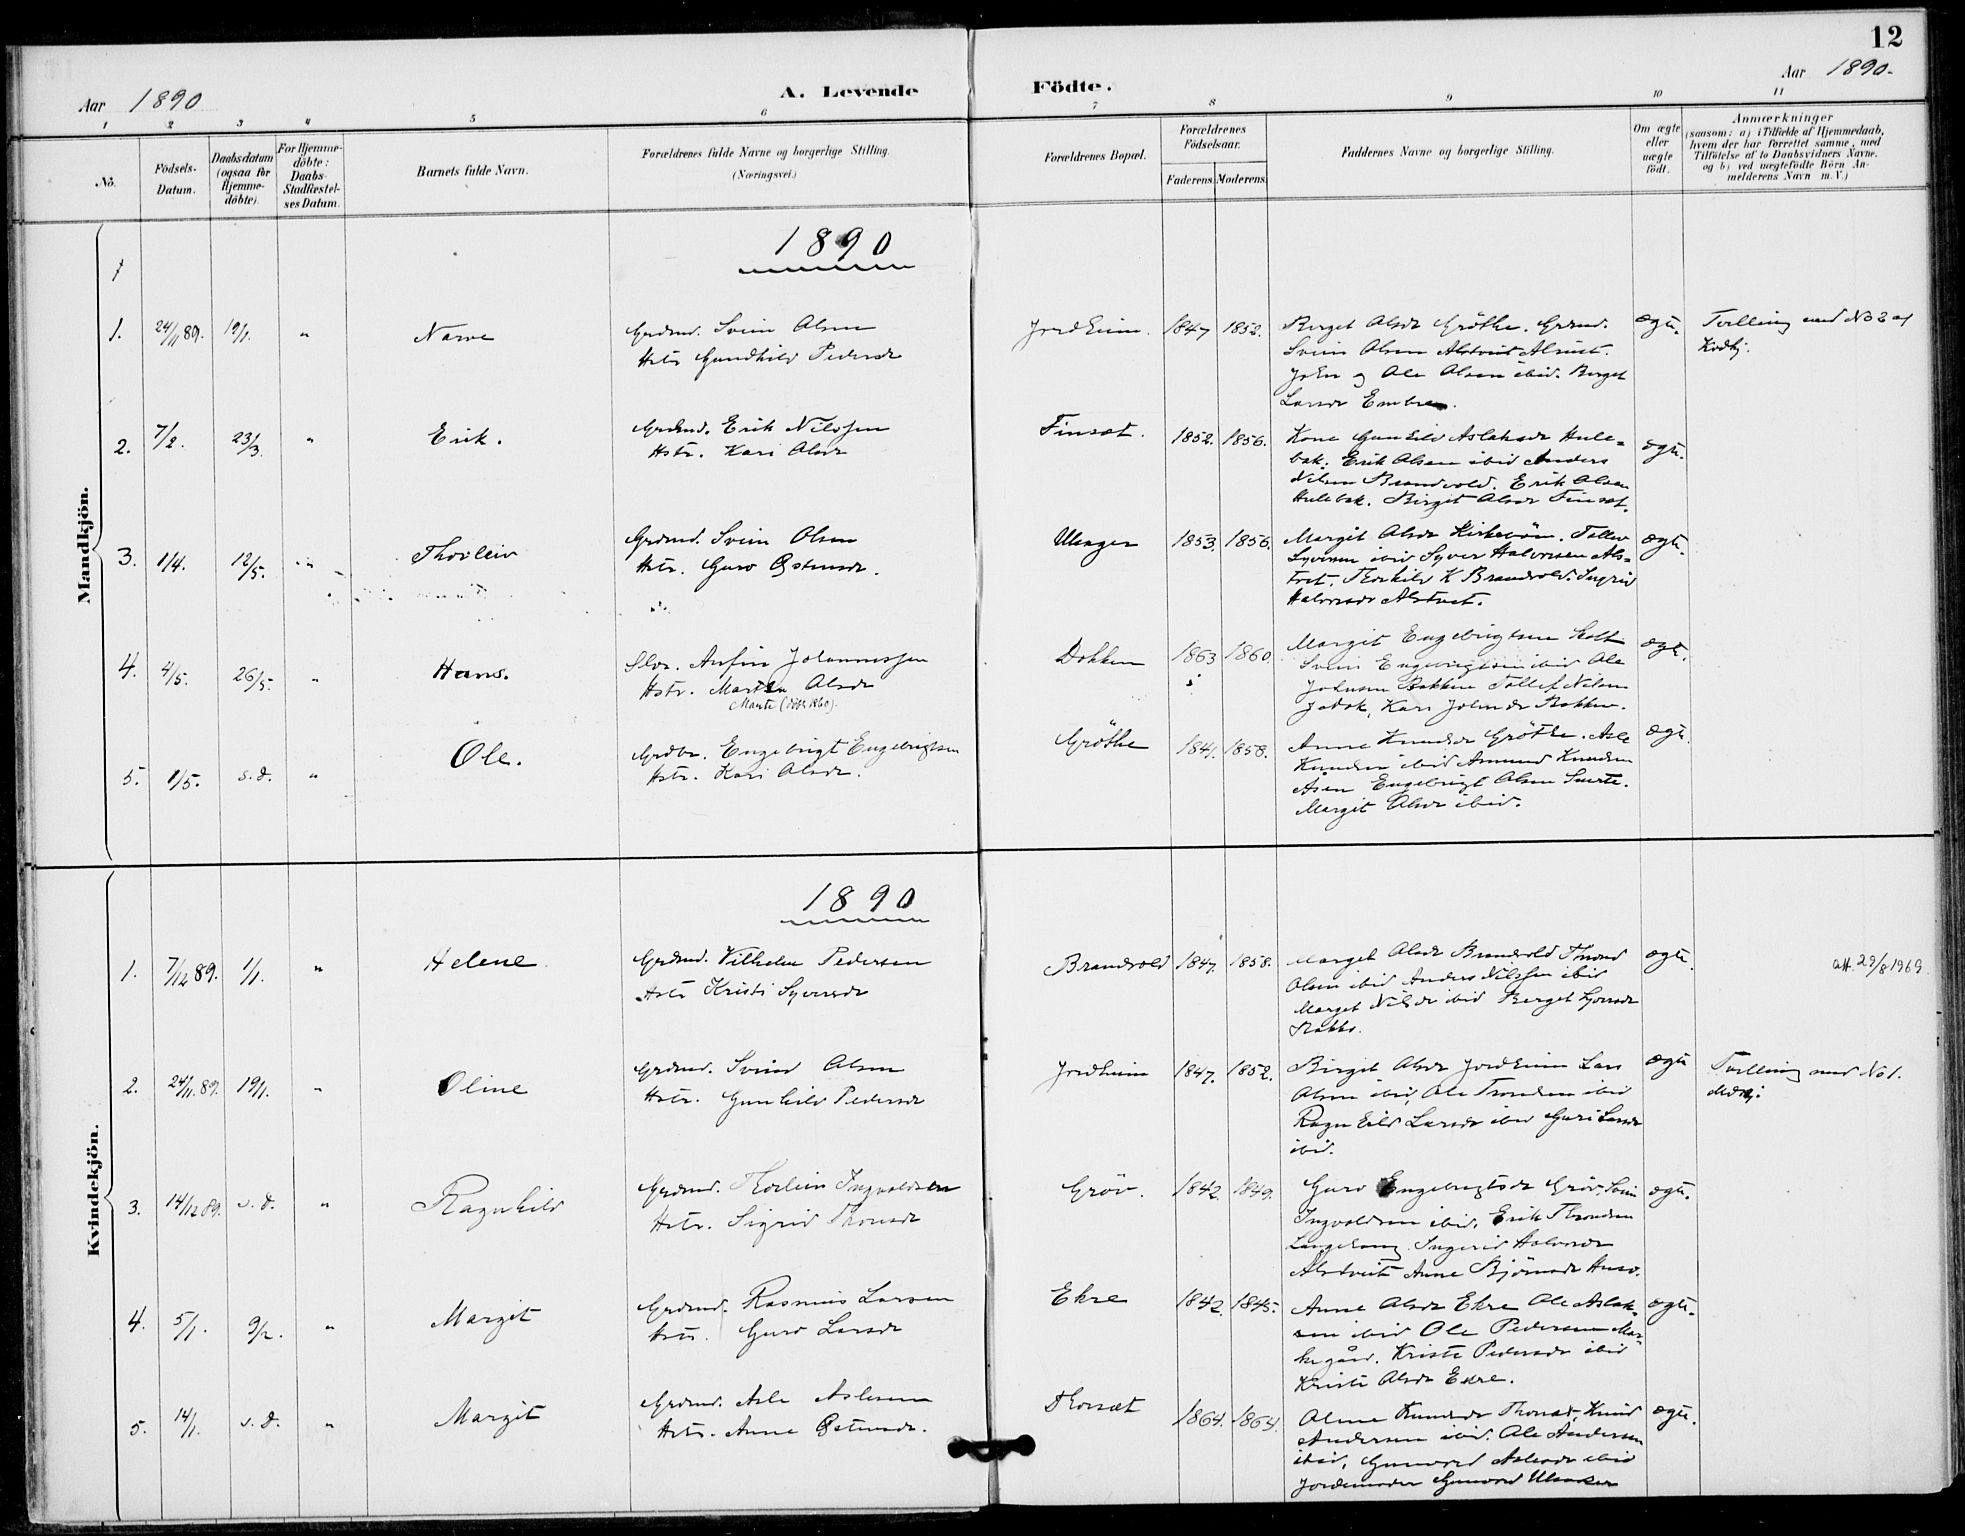 12
Aar 1890
A. Levende Födte.
Aar 1890.
1 2 3 4 5 6 7 8 9 10 11
No.
Födsels-
Datum.
Daabsdatum
(ogsaa for
Hjemme-
döbte).
For Hjemme-
döbte:
Daabs-
Stadfæstel-
ses Datum.
Barnets fulde Navn.
Forældrenes fulde Navne og borgerlige Stilling.
(Næringsvei.)
Forældrenes Bopæl.
Forældrenes
Födselsaar.
Faderens. Moderens.
Faddernes Navne og borgerlige Stilling.
Om ægte
eller
uægte
födt.
Anmærkninger
(saasom: a) i Tilfælde af Hjemmedaab,
hvem der har forrettet samme, med
Tilföielse af to Daabsvidners Navne,
og b) ved uægtefödte Börn An-
melderens Navn m. V.)
Mandkjön.
1890
1. 24/11 89. 19/1. " Narve
Grdmd. Svein Olsen
Hstr Gundhild Pedersdr
Jordheim. 1847 1852.
Birget Olsdr Gröthe. Grdmd.
Svein Olsen
og Ole Olsen ibid. Birget
Larsdr
ægte.
Tvilling med No 2 af
Kvdkj.
2. 7/2. 23/3. " Erik.
Grdmd. Erik Nilssen
Hstr. Kari Olsdr
Finset. 1852. 1856.
Kone Gunhild Aslaksdr Hule=
bak. Erik Olsen ibid Anders
Nilsen Brandvold. Erik Olsen
Hulebak. Birgit Olsdr Finset.
ægte.
3. 1/4. 12/5. " Thorleiv
Grdmd. Svein Olsen
Hstr. Guro Östensdr.
Ulsager 1853. 1856.
Margit Olsdr Kirkebön. Tollev
Syversen ibid Syver Halvorsen Als=
tvet. Thorhild K Brandvold. Ingrid
Halvorsdr Alstvet.
ægte.
4. 4/5. 26/5. " Hans.
Anfin Johannessen
Hstr. Olsdr
Marte (döbt 1860).
Dokken 1863 1860.
Margit Engebrigtsen
Svein Engebrigtsen ibid Ole
Johnsen Bakken Tollef Nilsen
Kari Johnsdr Bakken.
ægte.
5. 1/5. s. d. " Ole.
Engebrigt Engebrigtsen
Hstr. Kari Olsdr.
Gröthe 1841. 1858.
Anne Knudsdr Gröthe. Asle
Knudsen ibid Amund Knudsen
Åsen Engebrigt Olsen
Margit Olsdr ibid.
ægte.
Kvindekjön.
1890
1. 7/12 89. 1/1. " Helene
Grdmd. Vilhelm Pedersen
Hstr Kristi Syversdr
Brandvold 1847. 1858.
Marget Olsdr Brandvold
Olsen ibid Anders Nilssen ibid
Marget Nilsdr ibid Berget

ægte.
att. 29/8 1969.
2. 24/11. 89. 19/1. " Oline
Grdmd. Svein Olsen
Hstr. Gunhild Pedersdr
Jordheim 1847. 1852.
Birgit Olsdr Jordheim Lars
Olsen ibid, Ole Trondsen ibid
Ragnhild Larsdr ibid Guri Larsdr
ibid.
ægte
Tvilling med No 1.
Mdkj.
3. 14/12 89. s. d. " Ragnhild
Grdmd. Thorleiv Ingvaldsen
Hstr. Sigrid Thorsdr
Gröv. 1842. 1849.
Guro Engebrigtsdr Gröv. Svein
Ingvaldsen ibid. Erik Throndsen
Langehaug. Ingerid Halvorsdr
Alstveit Anne Björnsdr
ægte.
4. 5/1. 9/2. " Margit
Grdmd. Rasmus Larsen
Hstr. Guro Larsdr
Ekre 1842. 1845.
Anne Olsdr Ekre Ole Aslak-
sen ibid Ole Pedersen Mar-
kegård. Kristi Pedersdr ibid
Kristi Olsdr Ekre.
ægte.
5. 14/1. s. d. " Margit
Grdmd. Asle Aslesen
Hstr. Anne Östensdr.
Thorset 1864. 1864.
Knudsdr Thorset, Knud
Andersen ibid. Ole Andersen
ibid, Gunvord Aslesdr ibid
Jordemoder Gunvord
ægte.